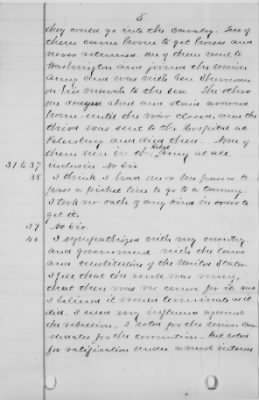 5
they could go into the cavalry. Two of
them came home to get horses and
never returned. One of them went to
Washington and joined the Union
Army and was with Gen Sherman
on his march to the Sea. The other
one dodged about and staid around
home until the war closed, and the
third was sent to the Hospital at
Petersburg and died there. None of
them were in the Rebel Army at all.
31 to 37 inclusive No Sir.
38 I think I heard me the
pass a picket line to go to a tannery
I took no oath of any kind in order to
get it.
39 No Sir.
40 I sympathized with my country
and government with the laws
and constitution of the United States.
I felt that the South was wrong,
that there was no cause for it and
I believed it would terminate as it
did. I used my influence against
the rebellion, I voted for the Union Can-
didates for the convention but voted
for ratification under